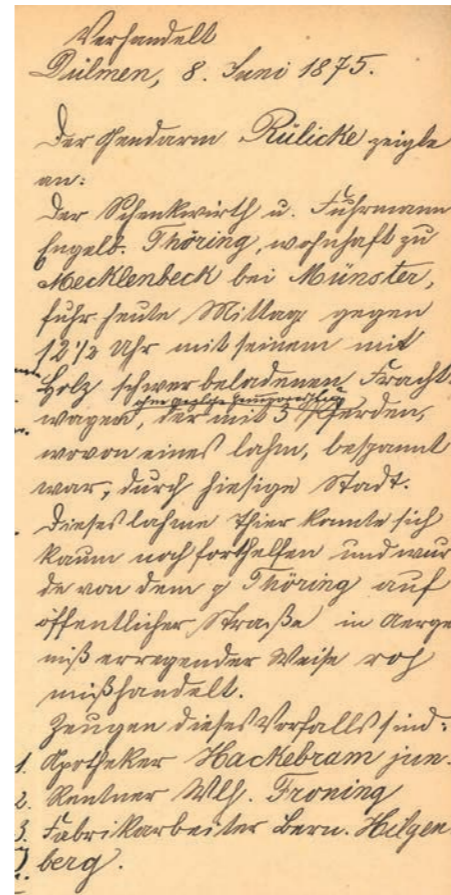 Verhandelt
Dülmen, 8. Juni 1875.
Der Gendarm Rülicke zeigte
an:
Der Schenkwirth u. Fuhrmann
Engelb. Thöring, wohnhaft zu
Mecklenbeck bei Münster,
fuhr heute Mittag gegen
12 1/2 Uhr mit seinem mit
Holz schwer beladenen Fracht-
ohne
wagen, der mit 3 Pferden,
wovon eines lahm, bespannt
war, durch hiesige Stadt.
Dieses lahme Thier konnte sich
kaum noch forthelfen und wur
de von dem p Thöring auf
öffentlicher Straße in Aerge
niß erregender Weise roh
mißhandelt.
Zeugen dieses Vorfalls sind:
1. Apotheker Hackebram jun.
2. Rentner Wlh. Froning
3. Fabrikarbeiter Bern. Hilgen
berg.